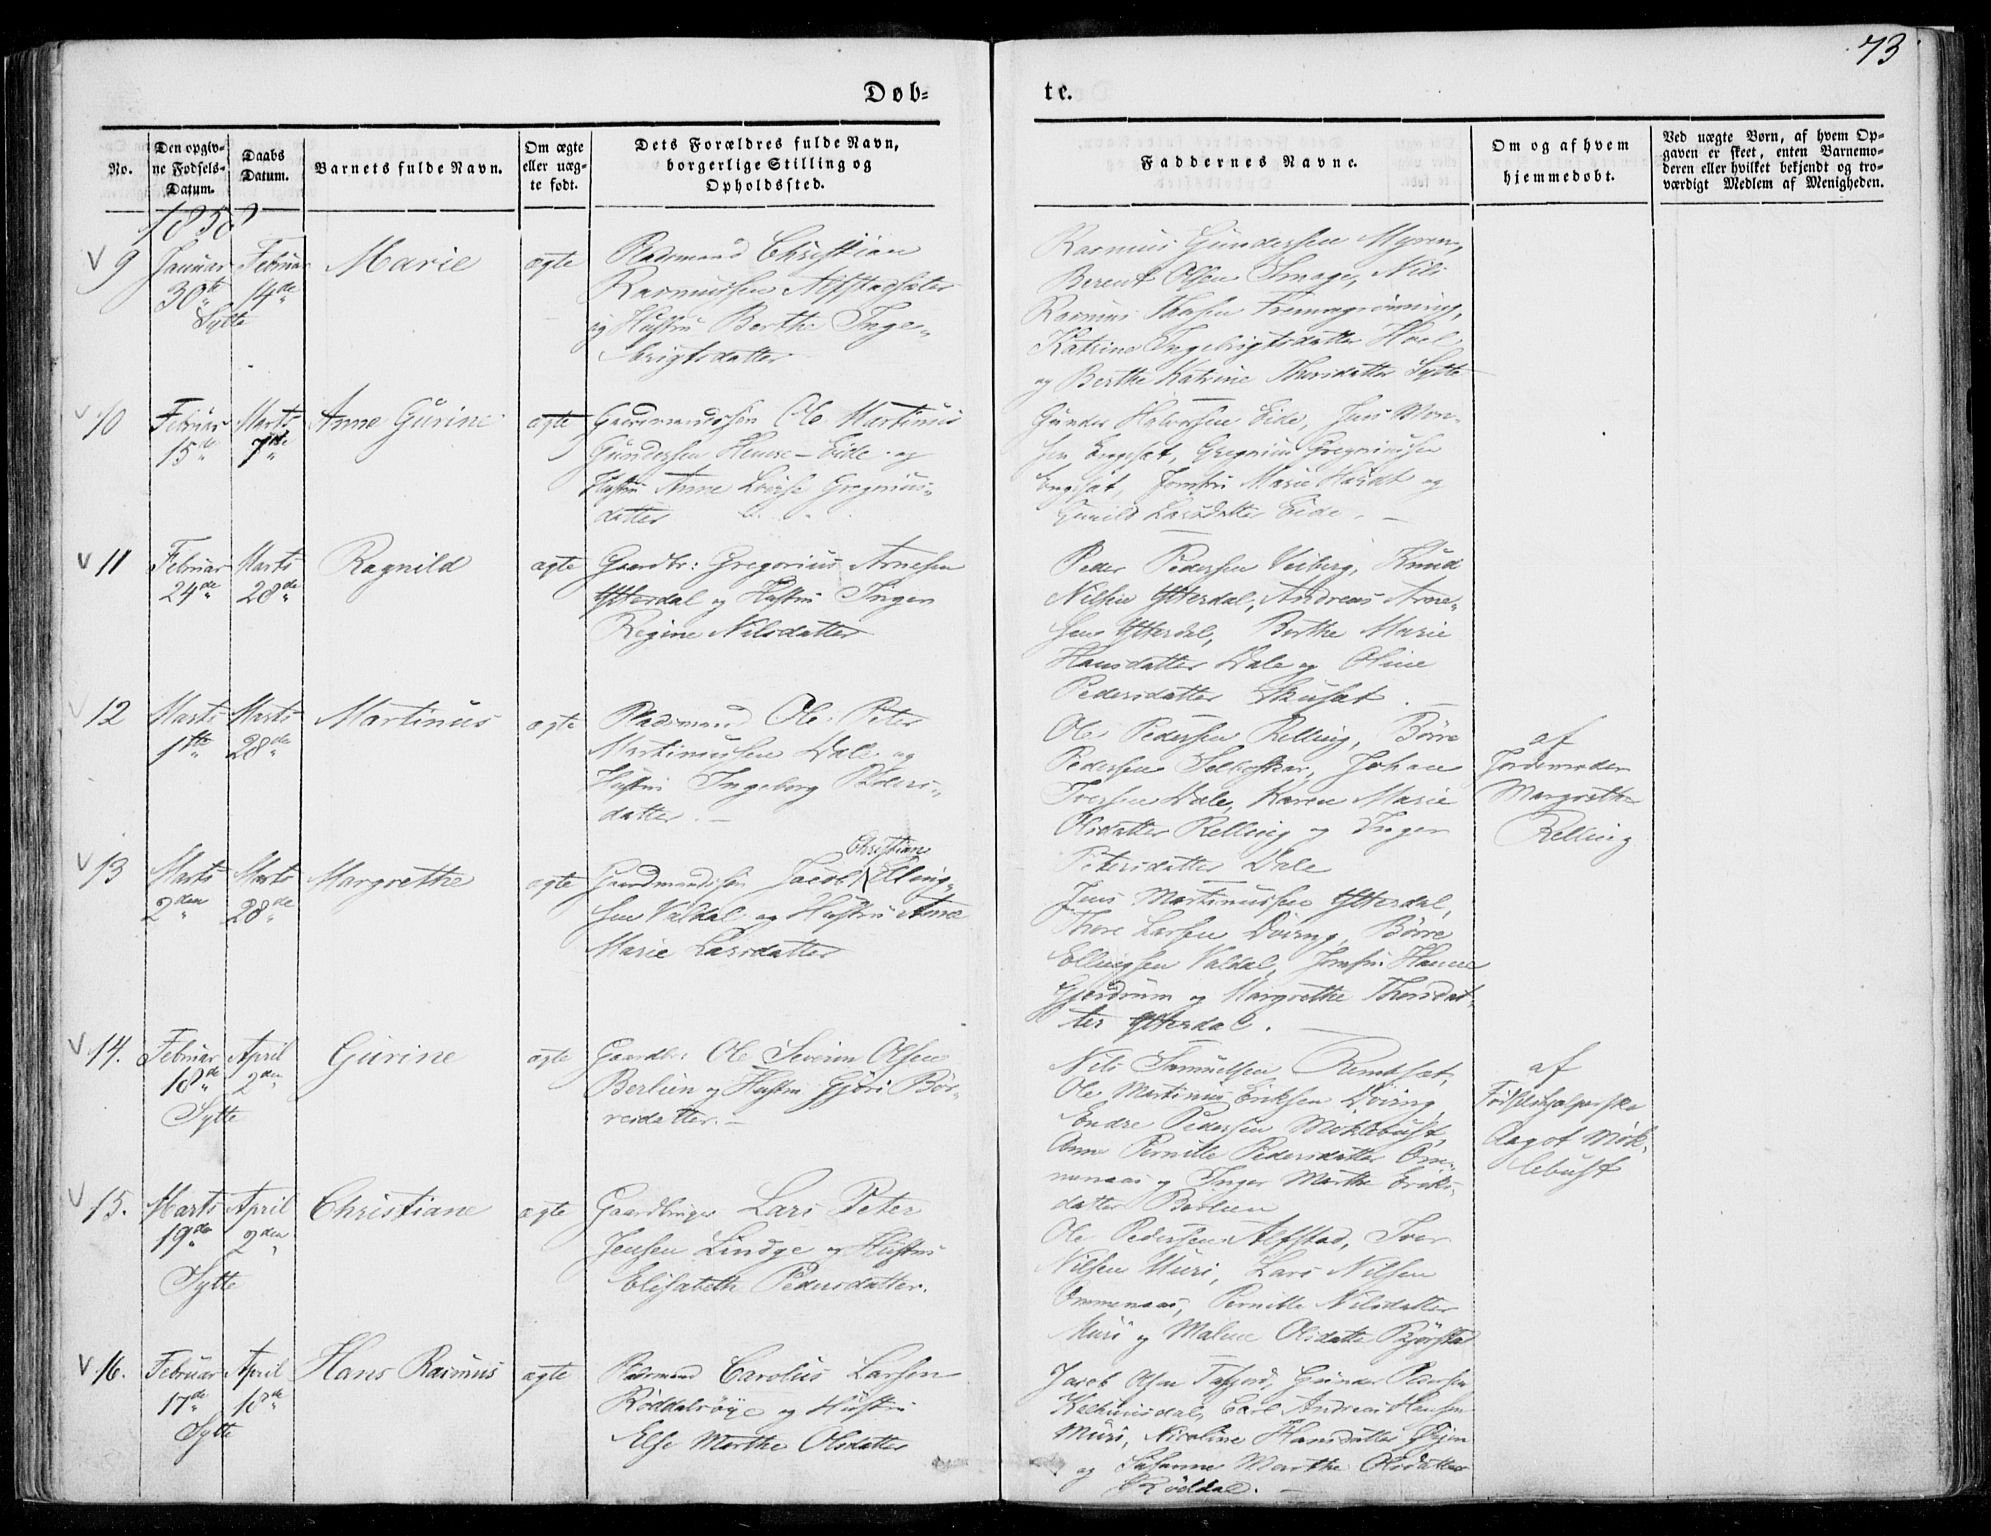 73
Døb=
te.
No.
Den opgiv=
ne Fødsels=
Datum.
Daabs
Datum.
Barnets fulde Navn.
Om ægte
eller uæg=
te født.
Dets Forældres fulde Navn,
borgerlige Stilling og
Opholdssted.
Faddernes Navne.
Om og af hvem
hjemmedøbt.
Ved uægte Børn, af hvem Op=
gaven er skeet, enten Barnemo=
deren eller hvilket bekjendt og tro=
værdigt Medlem af Menigheden.
1858
9
Januar
30te
Februar
14de
Sylte
Marie
ægte
Pladsmand Christian
Rasmussen Alfstadsæter
og Hustru Berthe Inge=
brigtsdatter
Rasmus Gundersen Myren,
Berent Olsen Smage, Nils
Rasmus Fremmegrønning,
Katrine Ingebrigtsdatter Hoel
og Berthe Katrine Thorsdatter Sylte
10
Februar
15de
Marts
7de
Anne Gurine
ægte
Gaardmandssøn Ole Martinus
Gundersen Eide og
Hustru Anne Lovise Gregorius=
datter
Gunder Halvorsen Eide, Jens Mon=
sen Engeset, Gregorius Gregoriussen
Engeset, Jomfru Marie og
Gunild Larsdatter Eide.
11
Februar
24de
Marts
28de
Ragnild
ægte
Gaardbr: Gregorius Arnesen
Ytterdal og Hustru Inger
Regine Nilsdatter
Peder Pedersen Veiberg, Knud
Nilsen Ytterdal, Andreas Arne=
sen Ytterdal, Berthe Marie
Hansdatter Dale og Oline
Pedersdatter
12
Marts
1ste
Marts
28de
Martinus
ægte
Pladsmand Ole Peter
Martinussen Dale og
Hustru Ingeborg Peders=
datter.
Ole Pedersen Relling, Børre
Pedersen Selboskar, Johan
Iversen Dale, Karen Marie
Olsdatter Relling og Inger
Petersdatter Dale
af
Jordemoder
Margrethe
Relling
13
Marts
2den
Marts
28de
Margrethe
ægte
Christian
Gaardmandssøn Jacob Elling=
sen Valdal og Hustru Anne
Marie Larsdatter
Jens Martinussen Ytterdal,
Thore Larsen Døving, Børre
Ellingsen Valdal, Jomfru Hanne
Gjerdrum og Margrethe Thorsdat=
ter Ytterdal.
14.
Februar
18de
April
2den
Sylte
Gurine
ægte
Gaardbr: Ole Severin Olsen
Berlien og Hustru Gjøri Bør=
resdatter.
Nils Samuelsen
Ole Martinus Eriksen Døving,
Endre Pedersen Møklebust,
Anne Pernille Pedersdatter Om=
menaas og Inger Marthe Eriks=
datter Berlien
af
Fødselshjelperske
Aagot Møk=
lebust
15.
Marts
19de
April
2den
Sylte
Christiane
ægte
Gaardbruger Lars Peter
Jensen Lindge og Hustru
Elisabeth Pedersdatter.
Ole Pedersen Alfstad, Iver
Nilsen Muri, Lars Nilsen
Ommenaas, Pernille Nilsdatter
Muri og Malene Olsdatter Bjørstad
16.
Februar
17de
April
18de
Sylte
Hans Rasmus
ægte
Pladsmand Carolus Larsen
Røddalsøye og Hustru
Else Marthe Olsdatter
Jacob Olsen Tafjord, Gunder
Kalhusdal, Carl Andreas Hansen
Muri, Nicoline Hansdatter Øien
og Susanne Marthe Olsdatter
Røddal.